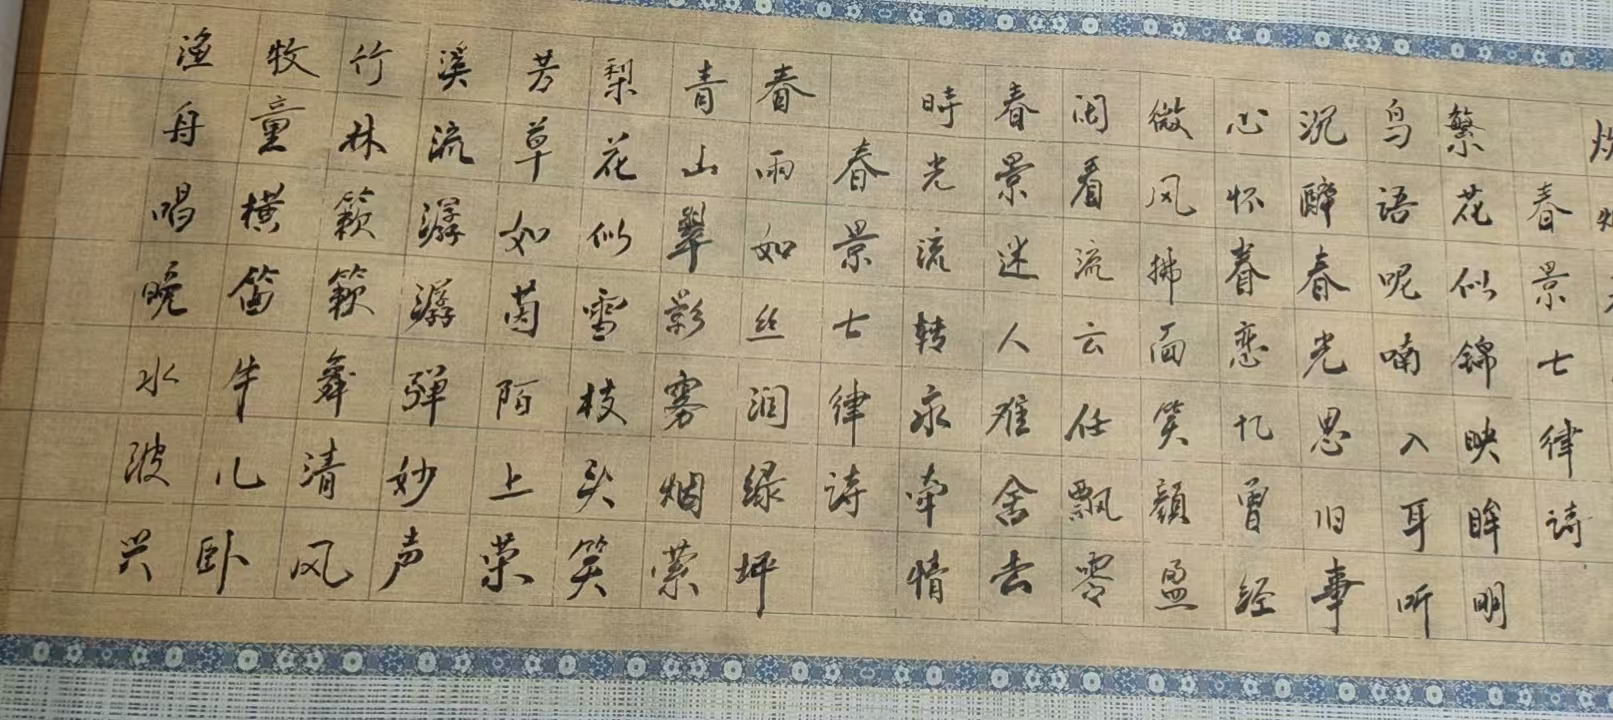 春景七律诗
繁花似锦映眸明
鸟语呢喃入耳听
沉醉春光思旧事
心怀眷恋忆曾经
微风拂面笑顔盈
闲看流云任飘零
春景迷人难舍去
時光流转永牵情
春景七律诗
春雨如丝润绿坪
青山翠影雾烟萦
梨花似雪枝头笑
芳草如茵陌上荣
溪流潺潺弹妙声
竹林簌簌舞清风
牧童横笛牛儿卧
渔舟唱晚水波兴